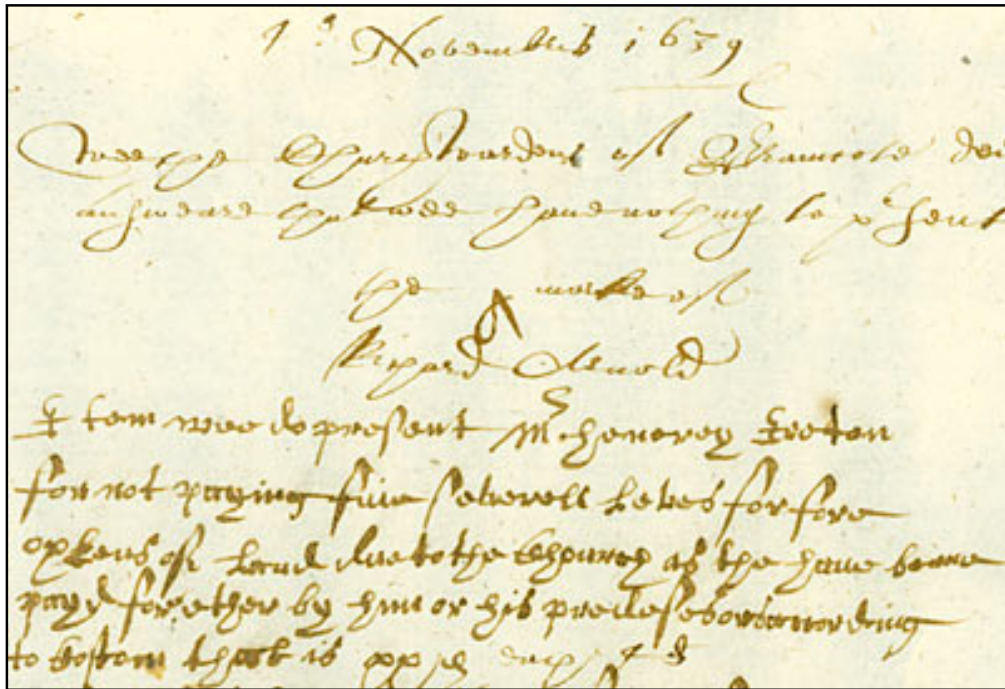 Novembris 1639
Wee the Churchwardens of Bramcote doe
answeare that wee have nothing to p'sent
the marke of
Richard Arnold
Item wee do present Mr henerey Ireton
for not paying five severell leves for fore
oxkens of Land due to the Church as the have beene
payd for ether by him or his predesesors acording
to kostom that is